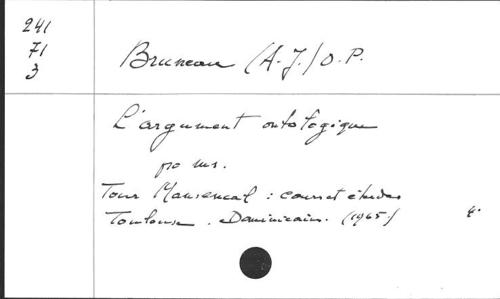 241
71
3
Bruneau (A.J.) O.P.
L'argument ontologique
pro ms.
Tour Mansencal : cours et études
Toulouse. Dominicains. (1965.)